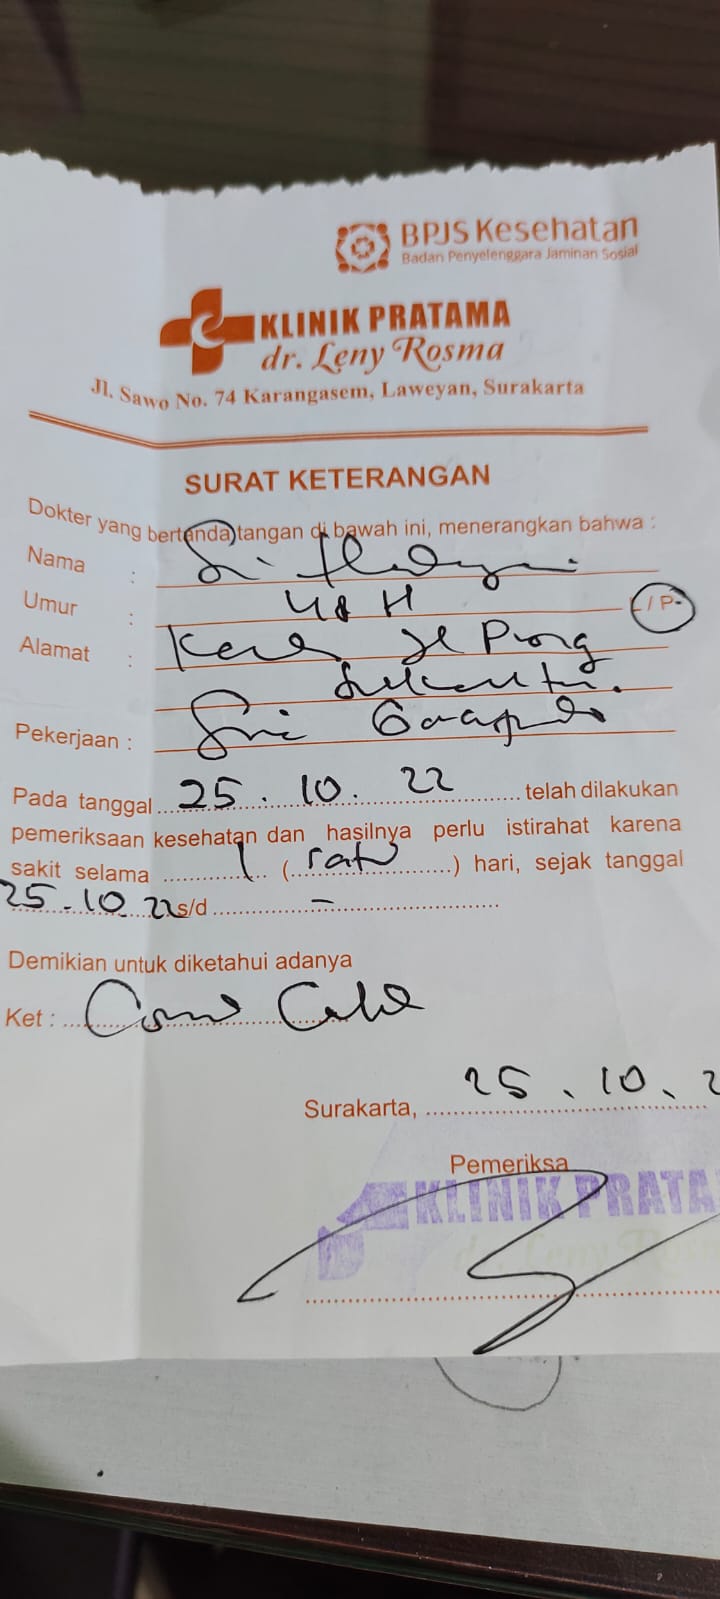 BPJS Kesehatan
Badan Penyelenggara Jaminan Sosial
KLINIK PRATAMA
dr. Leny Rosma
Jl. Sawo No. 74 Karangasem, Laweyan, Surakarta
SURAT KETERANGAN
Dokter yang bertanda tangan di bawah ini, menerangkan bahwa :
Nama :
Umur : L / P
Alamat :
Pekerjaan :
Pada tanggal 25 . 10 . 22 telah dilakukan
pemeriksaan kesehatan dan hasilnya perlu istirahat karena
sakit selama 1 (satu) hari, sejak tanggal
25 - 10 22 s/d -
Demikian untuk diketahui adanya
Ket :
Surakarta, 25 . 10 .
Pemeriksa
KLINIK PRATA
dr. Leny Rosm